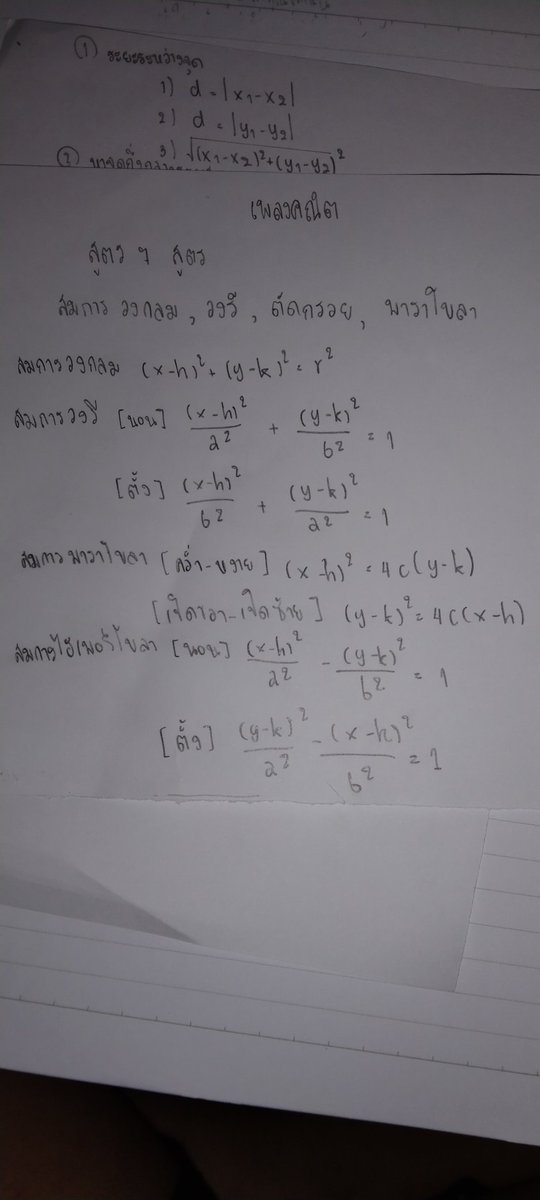 ① ระยะระหว่างจุด
1) d = |x₁-x₂|
2) d = |y₁-y₂|
3) √(x₁-x₂)²+(y₁-y₂)²
②
เพลงคณิต
สูตร ๆ สูตร
สมการ วงกลม, วงรี, ตัดกรวย, พาราโบลา
สมการวงกลม (x-h)²+(y-k)²=r²
สมการวงรี [นอน] (x-h)²/a² + (y-k)²/b² = 1
[ตั้ง] (x-h)²/b² + (y-k)²/a² = 1
สมการพาราโบลา [คว่ำ-หงาย] (x-h)² = 4c(y-k)
[เปิดขวา-เปิดซ้าย] (y-k)² = 4c(x-h)
สมการไฮเพอร์โบลา [นอน] (x-h)²/a² - (y-k)²/b² = 1
[ตั้ง] (y-k)²/a² - (x-h)²/b² = 1